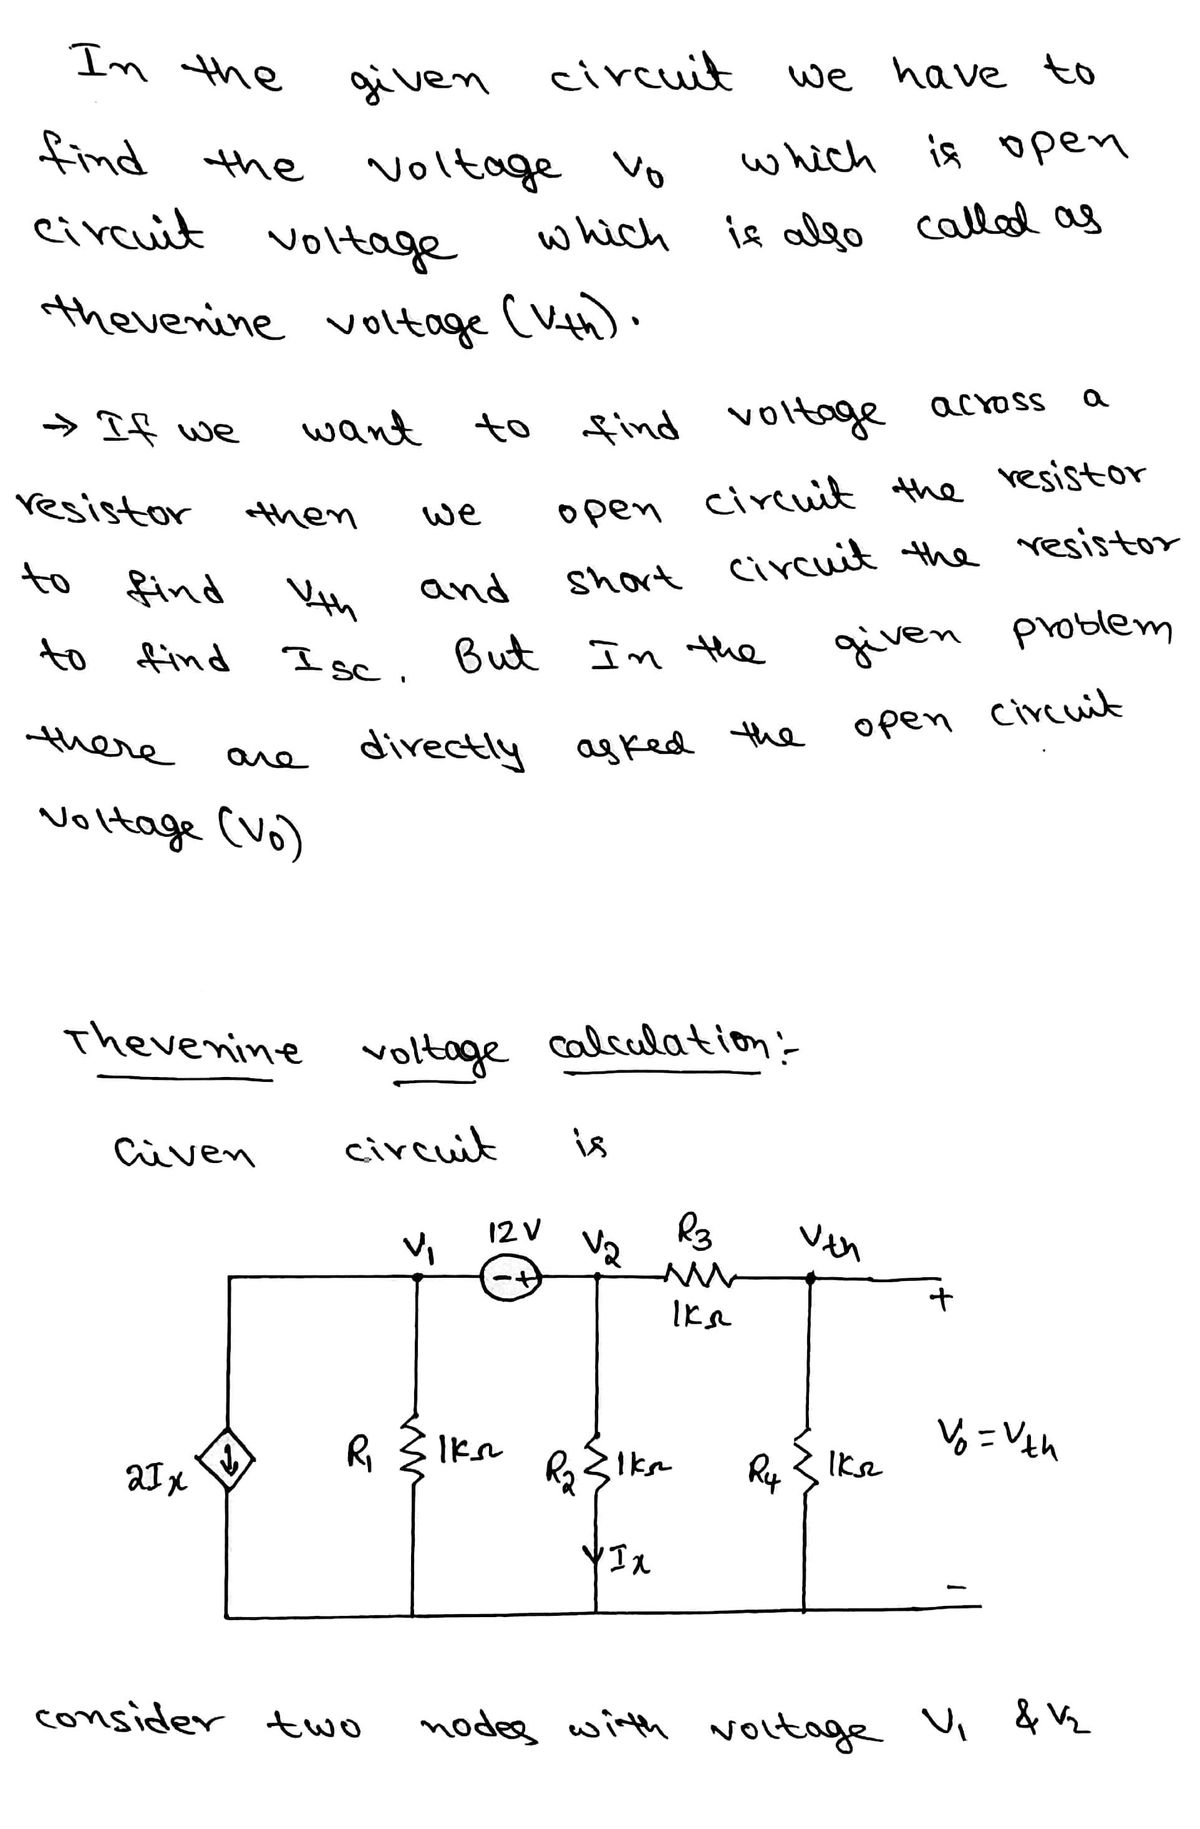 In the given circuit we have to
find the voltage V0 which is open
circuit voltage which is also called as
thevenine voltage (Vth).
→ If we want to find voltage across a
resistor then we open circuit the resistor
to find Vth and short circuit the resistor
to find Isc. But In the given problem
there are directly asked the open circuit
voltage (V0)
Thevenine voltage calculation:-
Given circuit is
V1 12V V2 R3 Vth
- +
1KΩ
+
2Ix
R1 1KΩ
R2 1KΩ
R4 1KΩ
V0 = Vth
Ix
-
consider two nodes with voltage V1 & V2